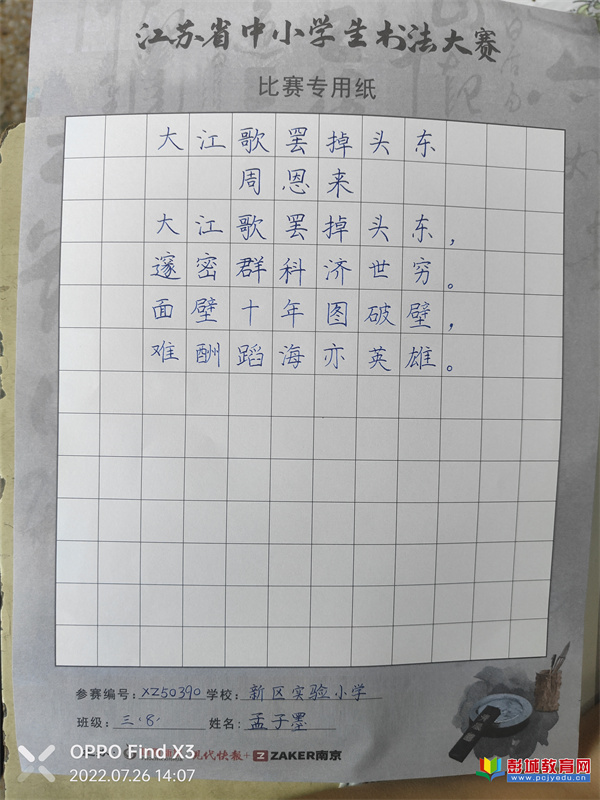 江苏省中小学生书法大赛
比赛专用纸
大江歌罢掉头东
周恩来
大江歌罢掉头东，
邃密群科济世穷。
面壁十年图破壁，
难酬蹈海亦英雄。
参赛编号：XZ50390 学校：新区实验小学
班级：三.8. 姓名：孟子墨
现代快报+ ZAKER南京
OPPO Find X3
2022.07.26 14:07
彭城教育网
www.pcjyedu.cn